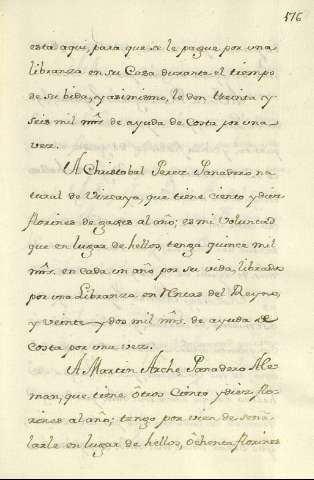 576
está aqui, para que se le pague por una
libranza en su Casa durante el tiempo
de su bida, y asimismo, le den treinta y
seis mil mrs. de ayuda de Costa por una
vez.
A Christobal Perez Panadero na
tural de Vizcaya, que tiene ciento y diez
florines de gages al año; es mi voluntad
que en lugar de hellos, tenga quince mil
mrs. en cada un año por su vida, librados
por una Libranza en Rentas del Reyno,
y veinte y dos mil mrs. de ayuda de
Costa por una vez.
A Martin Arche Panadero Ale-
man, que tiene ôtros Ciento y diez flo-
rines al año; tengo por vien de seña-
larle en lugar de hellos, ôchenta florines